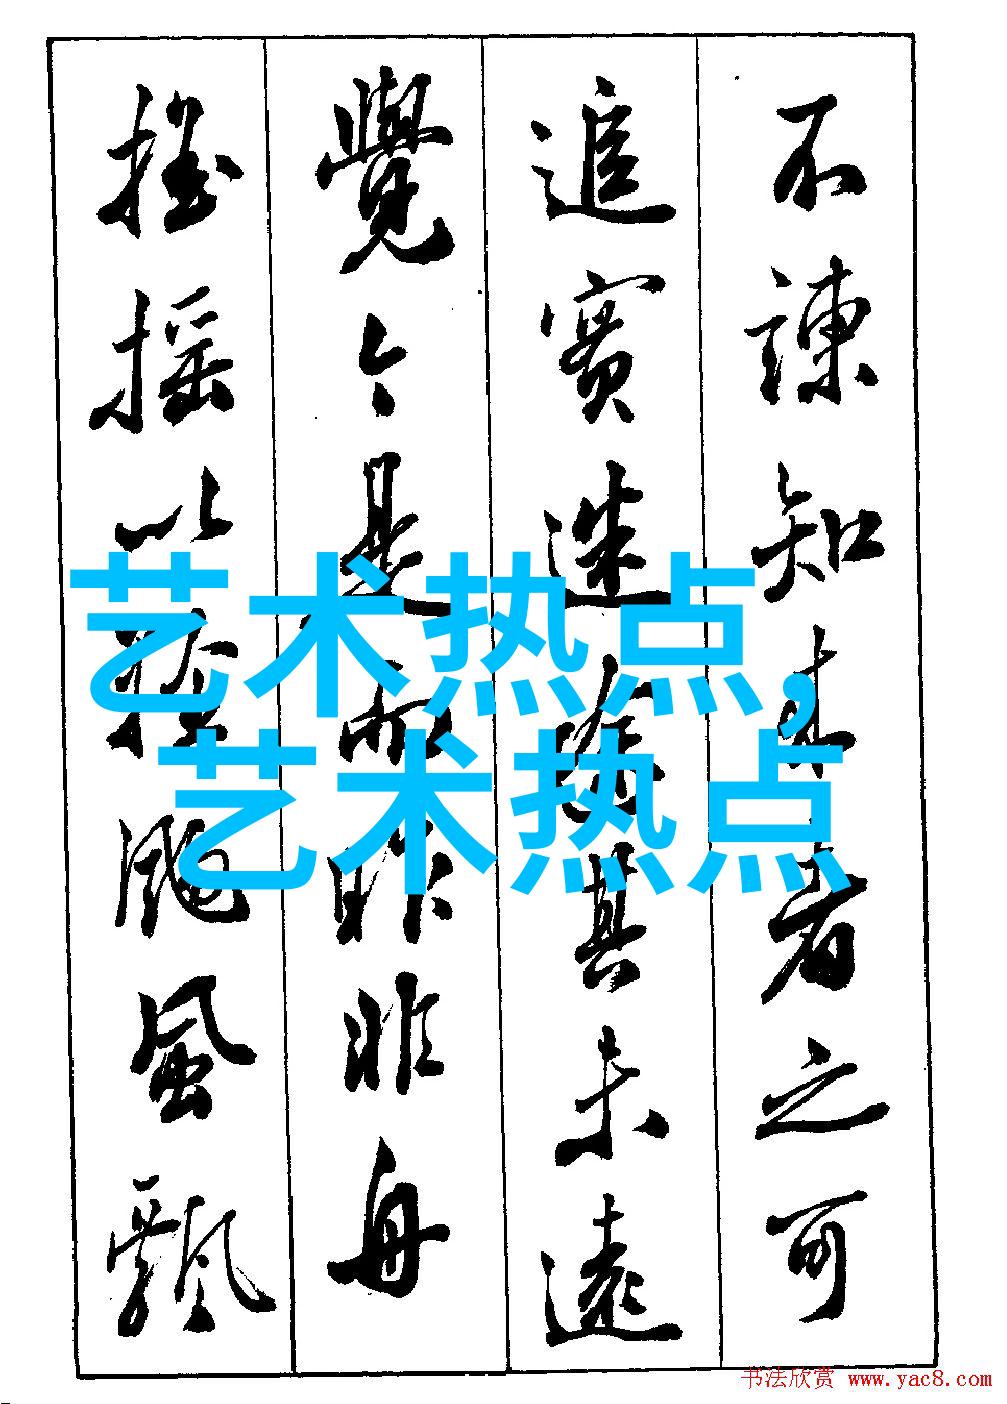 不諫知来者之可
追實迷途其未遠
覺今是而昨非舟
搖摇以輕颺風飄
艺术热点,
艺术热点
书法欣赏 www.yac8.com